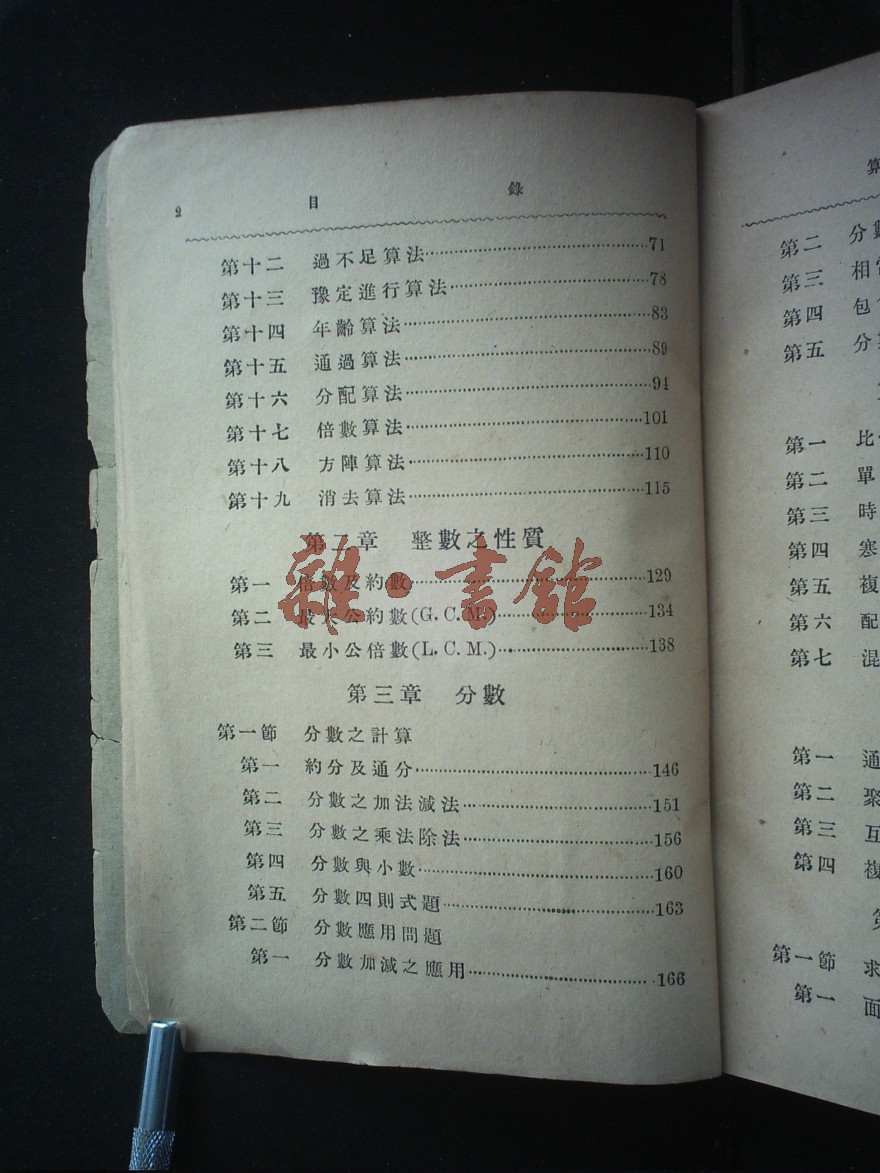 2 目 錄
第十二 過不足算法 71
第十三 豫定進行算法 78
第十四 年齡算法 83
第十五 通過算法 89
第十六 分配算法 94
第十七 倍數算法 101
第十八 方陣算法 110
第十九 消去算法 115
第二章 整數之性質
第一 倍數及約數 129
第二 最大公約數(G.C.M.) 134
第三 最小公倍數(L.C.M.) 138
第三章 分數
第一節 分數之計算
第一 約分及通分 146
第二 分數之加法減法 151
第三 分數之乘法除法 156
第四 分數與小數 160
第五 分數四則式題 163
第二節 分數應用問題
第一 分數加減之應用 166
雜·書館
算
第二 分數
第三 相
第四 包
第五 分
第一 比
第二 單
第三 時
第四
第五 複
第六 配
第七 混
第一 通
第二 聚
第三 互
第四 複
第
第一節 求
第一 面